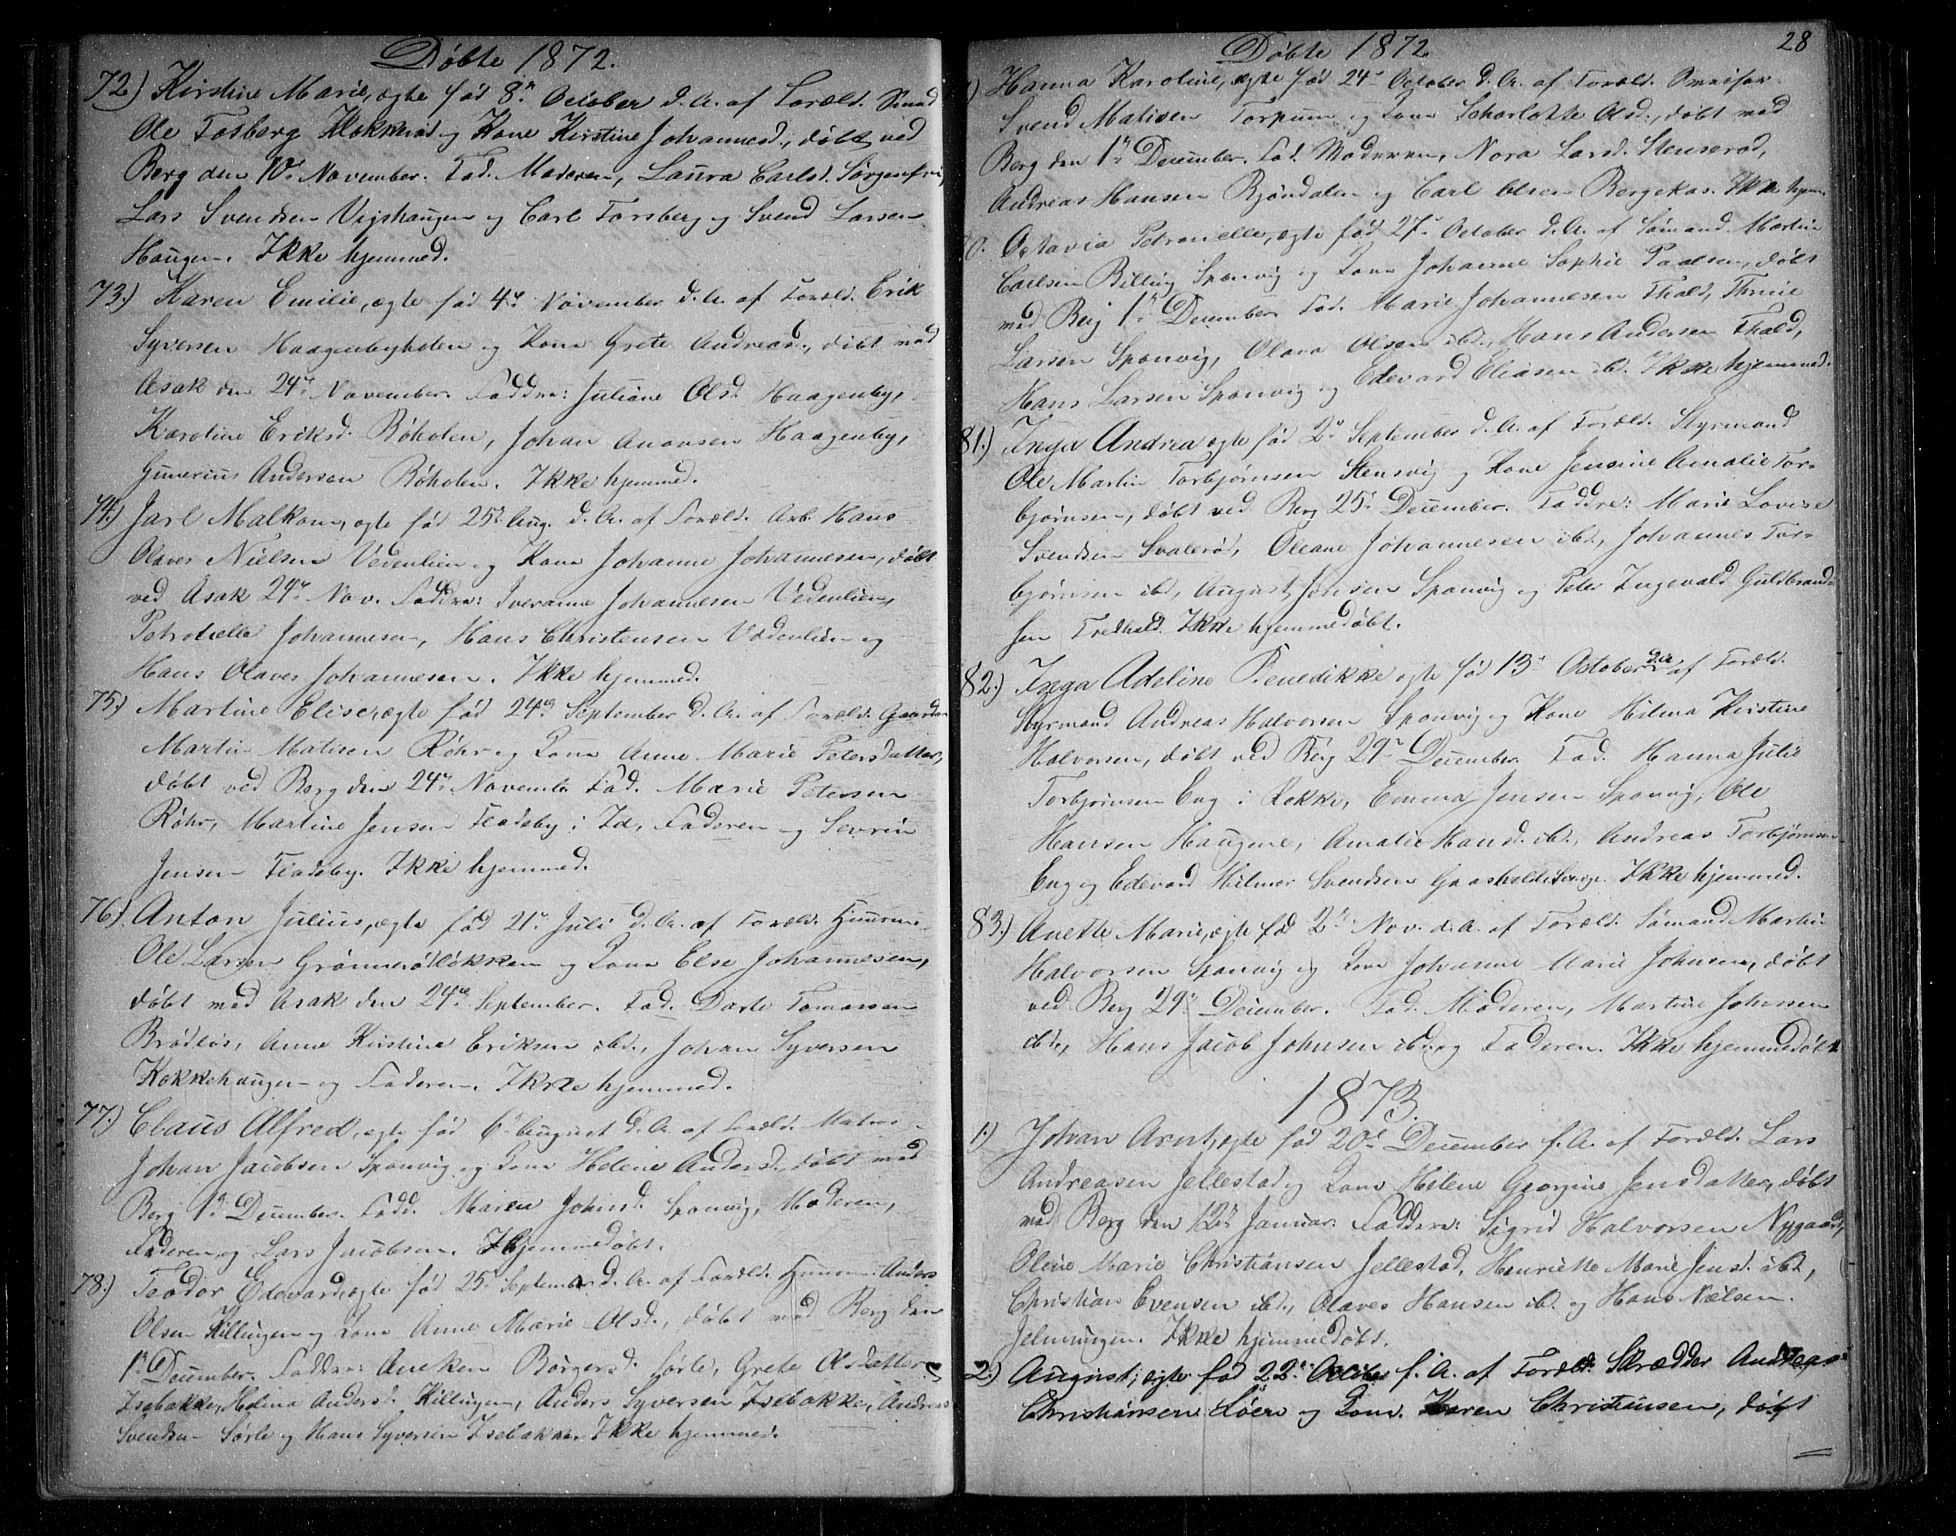 Döbte 1872.
72.) Kirstine Marie, ægte fød 8de October d. A. af Foræld. Smed
Ole Fosberg Klokkerød og Kone Kirstine Johannesd., döbt ved
Berg den 10de November. Fad. Moderen, Laura Carlsd. Sørgenfri,
Lars Svendsen Vejshaugen og Carl Forsberg og Svend Larsen
Haugen. Ikke hjemmed.
73.) Karen Emilie, ægte fød 4de November d. A. af Foræld. Erik
Syversen Haagenbyholen og Kone Grete Andreasd., döbt ved
Asak den 24de November. Faddre: Juliane Olsd. Haagenby,
Karoline Eriksd. Røholen, Johan Hansen Haagenby,
Gunerius Andersen Røholen. Ikke hjemmed.
74.) Jarl Malkom, ægte fød 25de Aug. d. A. af Foræld. Arb. Hans
Olaves Nielsen Vedenlien og Kone Johanne Johannesen, döbt
ved Asak 24de Nov. Faddre: Iveranne Johannesen Vedenlien,
Petronelle Johannesen, Hans Christensen Vedenlien og
Hans Olaves Johannesen. Ikke hjemmed.
75.) Martine Elise, ægte fød 24de September d. A. af Foræld. Gaardm.
Martin Matisen Røhr og Kone Anne Marie Petersdatter,
döbt ved Berg den 24de Novemb. Fad. Marie Petersen
Røhr, Martine Jensen Fladeby i Id, Faderen og Sevrin
Jensen Fladeby. Ikke hjemmed.
76.) Anton Julius, ægte fød 21de Juli d. A. af Foræld. Huusm.
Ole Larsen Grønnerødløkken og Kone Else Johannesen,
döbt ved Asak den 24de September. Fad. Dorte Tomassen
Brødløs, Anne Kirstine Eriksen ibd., Johan Syversen
Kokkehaugen og Faderen. Ikke hjemmed.
77.) Claus Alfred, ægte fød 6te August d. A. af Foræld. Matros
Johan Jacobsen Sponvig og Kone Helene Andersd., döbt ved
Berg 1de December. Fadd. Maren Johnsd. Sponvig, Moderen,
Faderen og Lars Jacobsen. Hjemmedöbt.
78.) Teodor Edevard, ægte fød 25de September d. A. af Foræld. Huusm. Anders
Olsen Killingen og Kone Anne Marie Olsd., döbt ved Berg den
1de December. Faddre: Aneken Børgersd. Sørle, Grete Olsdatter
Isebakke, Helena Andersd. Killingen, Anders Syversen Isebakke, Andreas
Svendsen Sørle og Hans Syversen Isebakke. Ikke hjemmed.
Döbte 1872. 28
) Hanna Karoline, ægte fød 24de October d. A. af Foræld.
Svend Matisen Torpum og Kone Scharlotte Olsd., döbt ved
Berg den 1de December. Fad. Moderen, Nora Larsd. Stenserød,
Andreas Hansen Bjöndalen og Carl Olsen Bergekas. Ikke hjem.
0. Octavia Petronelle, ægte fød 27de October d. A. af Sømand Martin
Carlsen Billing Sponvig og Kone Johanne Sophie Paalsen, döbt
ved Berg 1de December. Fad. Marie Johannesen Fhald, Thrine
Larsen Sponvig, Olava Olsen ibd., Hans Andersen Fhald,
Hans Larsen Sponvig og Edevard Eliasen ibd. Ikke hjemmed.
81.) Inga Andrea, ægte fød 2de September d. A. af Foræld. Styrmand
Ole Martin Torbjørnsen Stensvig og Kone Jensine Amalie Tor-
bjørnsen, döbt ved Berg 25de December. Faddre: Marie Lovise
Svendsen Svalerød, Oleane Johannesen ibd., Johannes Tor-
bjørnsen ibd., August Jensen Sponvig og Peter Ingevald Guldbrand-
sen Fredhald. Ikke hjemmedöbt.
82.) Inga Adeline Benedikke, ægte fød 13de October d. A. af Foræld.
Styrmand Andreas Halvorsen Sponvig og Kone Hilma Kirstine
Halvorsen, döbt ved Berg 29de December. Fad. Hanna Julie
Torbjørnsen Eng i Rokke, Emma Jensen Sponvig, Ole
Hansen Haugene, Amalie Hansd. ibd., Andreas Torbjørnsen
Eng og Edevard Hilmar Svendsen Ikke hjemmed.
83.) Anette Marie, ægte fød 2de Nov. d. A. af Foræld. Sømand Martin
Halvorsen Sponvig og Kone Johanne Marie Johnsen, döbt
ved Berg 29de December. Fad. Moderen, Martine Johnsen
ibd., Hans Jacob Johnsen ibd. og Faderen. Ikke hjemmedöbt
1873.
1.) Johan Arnt, ægte fød 20de December f. A. af Foræld. Lars
Andreasen Jellestad og Kone Helene Georgine Jensdatter, döbt
ved Berg den 12te Januar. Faddere: Sigrid Halvorsen Nygaard,
Oline Marie Christiansen Jellestad, Henriette Marie Jensd. ibd.,
Christian Evensen ibd., Olaves Hansen ibd. og Hans Nielsen
Jelmungen. Ikke hjemmedöbt.
2.) August, ægte fød 22de October f. A. af Foræld. Skrædder Andreas
Christiansen Löeri og Kone Karen Christiansen, döbt